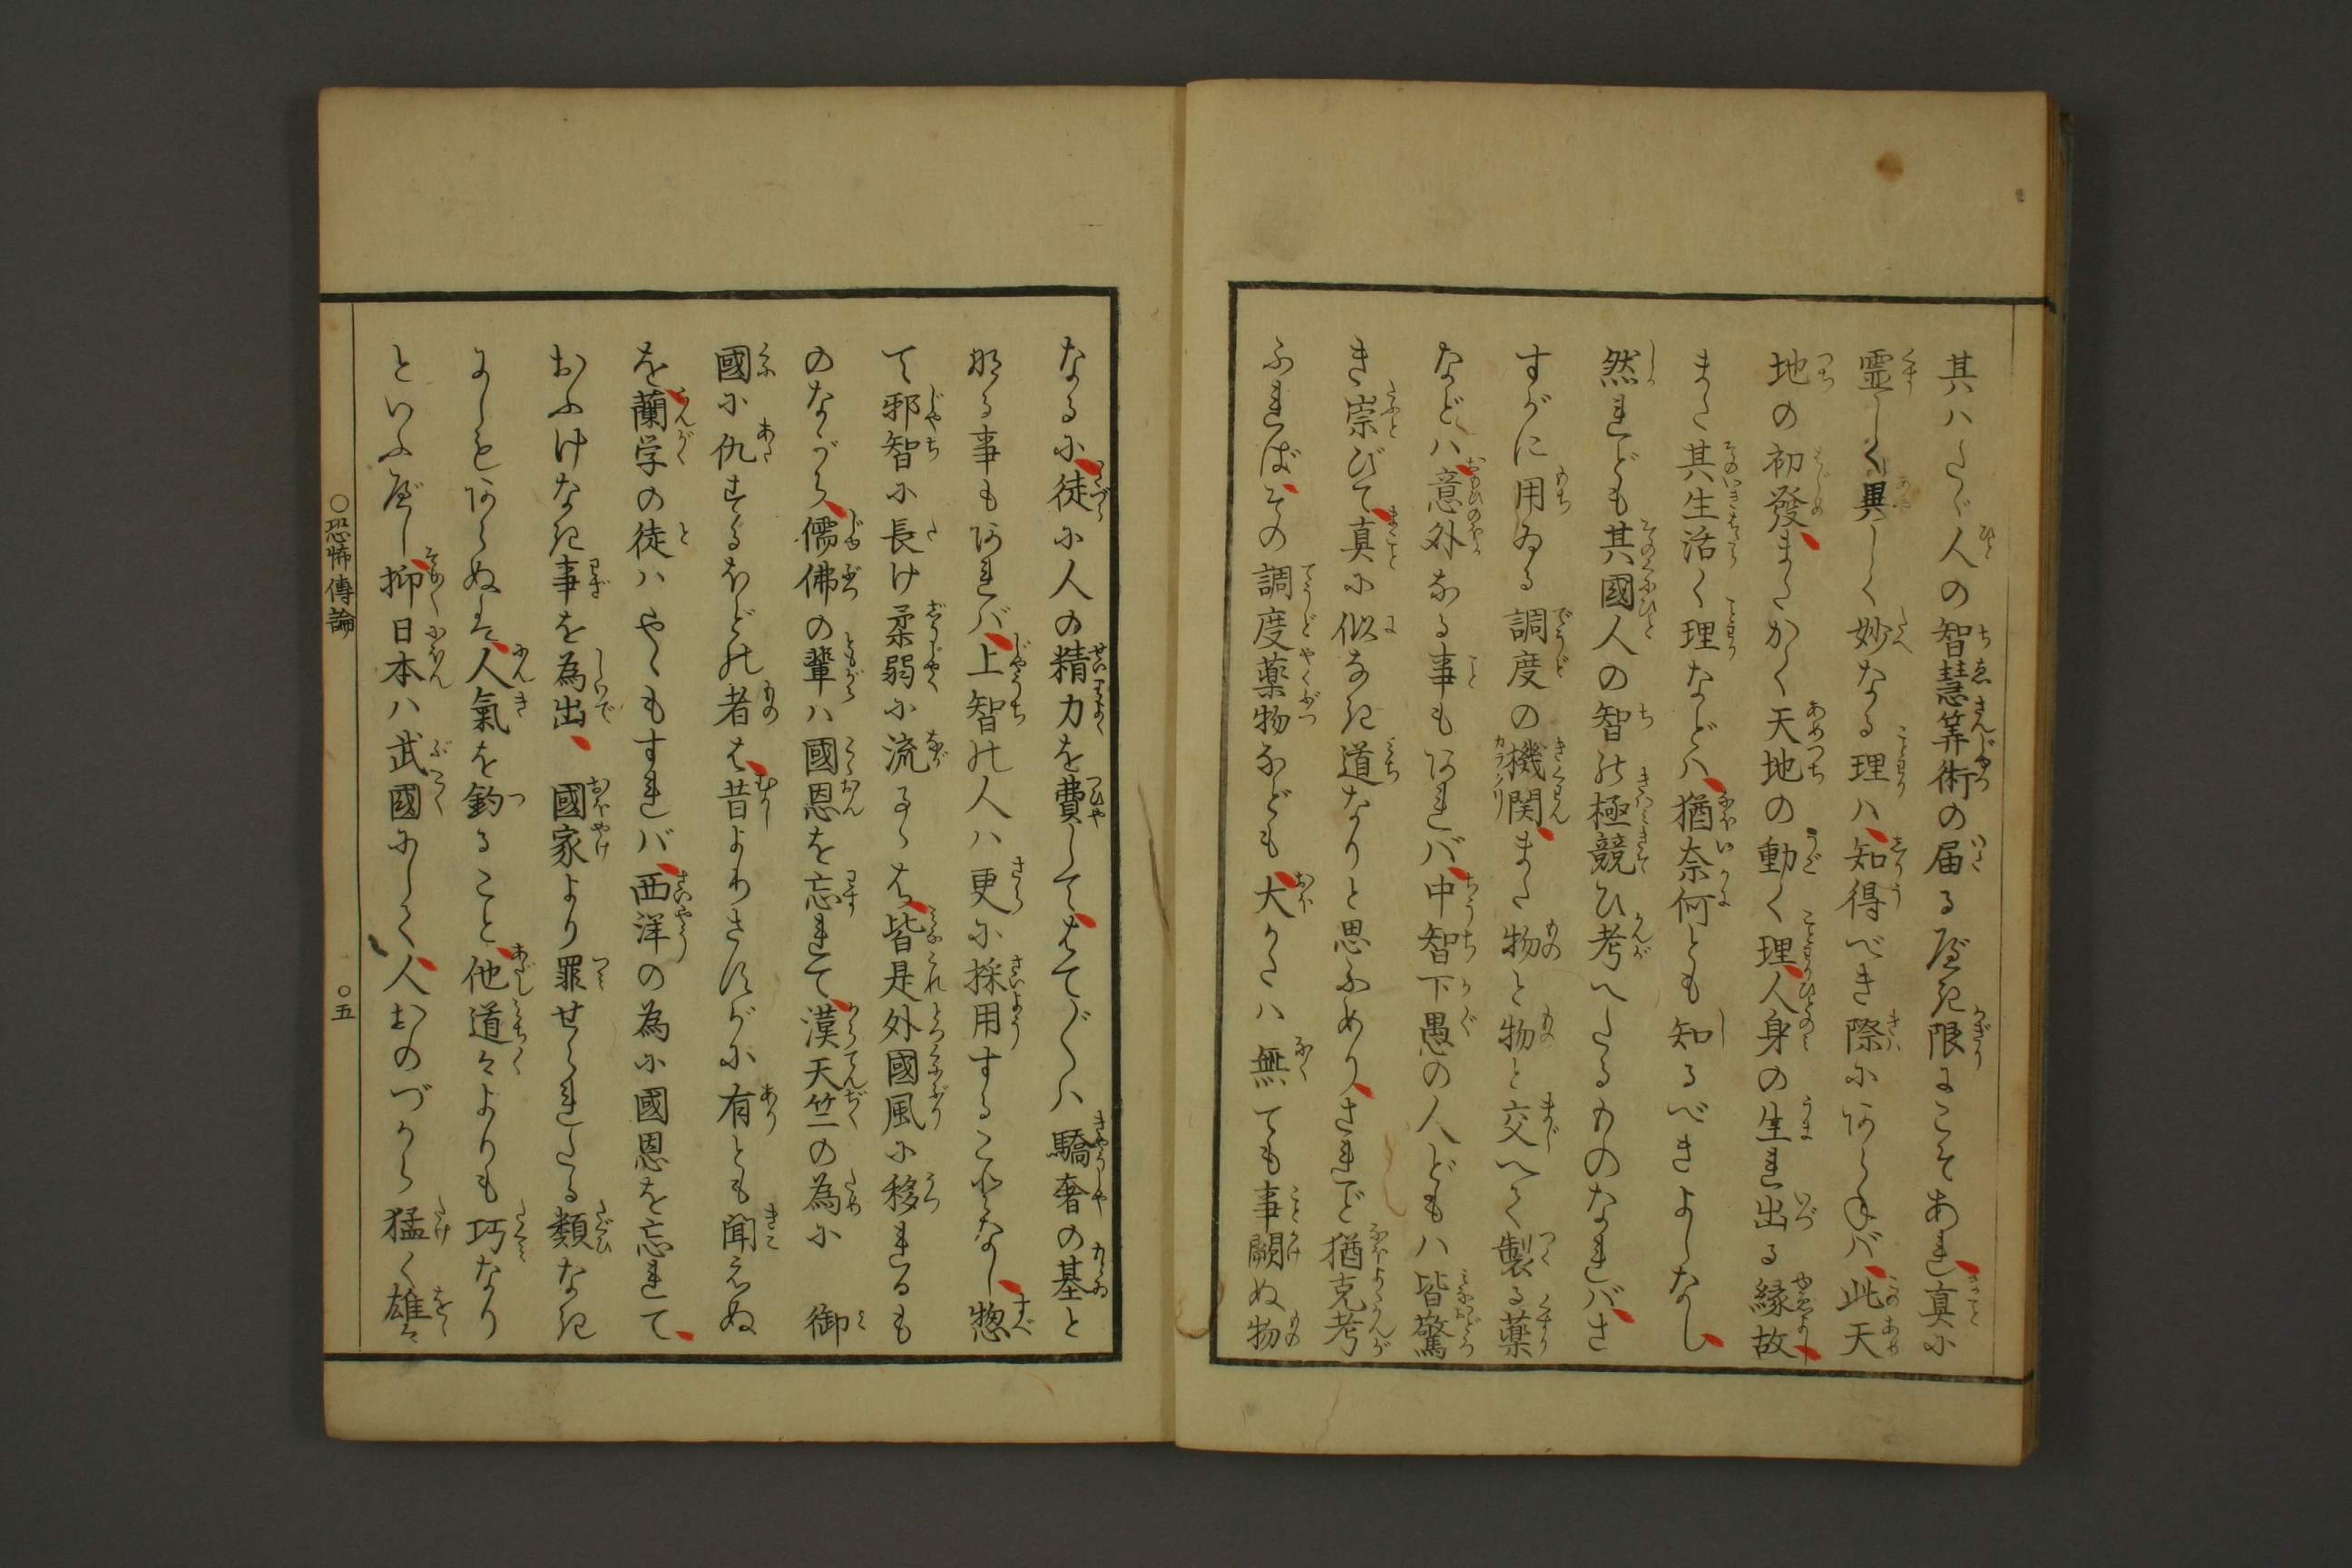 其ハたゞ人の智慧筭術の届る屋き限にこそあれ真に
霊しく異しく妙なる理ハ知得べき際にあらねバ此天
地の初發またかく天地の動く理人身の生れ出る縁故
また其生活く理などハ猶奈何とも知るべきよしなし
然れども其國人の智の極競ひ考へたるものなれバさ
すがに用ゐる調度の機関また物と物と交へて製る薬
などハ意外なる事もあれバ中智下愚の人どもハ皆驚
き崇びて真に似なき道なりと思ふめりされど猶克考
ふればその調度薬物なども大かたハ無ても事闕ぬ物
なるに徒に人の精力を費してはて〴〵ハ驕奢の基と
なる事もあれバ上智の人ハ更に採用することなし惣
て邪智に長け柔弱に流るゝは皆是外國風に移れるも
のながら儒佛の輩ハ國恩を忘れて漢天竺の為に　御
國に仇するほどの者は昔よりさすがに有とも聞えぬ
を蘭学の徒ハやゝもすれバ西洋の為に國恩を忘れて
おふけなき事を為出　國家より罪せられたる類なき
にしもあらぬは人氣を釣ること他道々よりも巧なり
といふべし抑日本ハ武國にして人おのづから猛く雄々
○恐怖傳論
○五